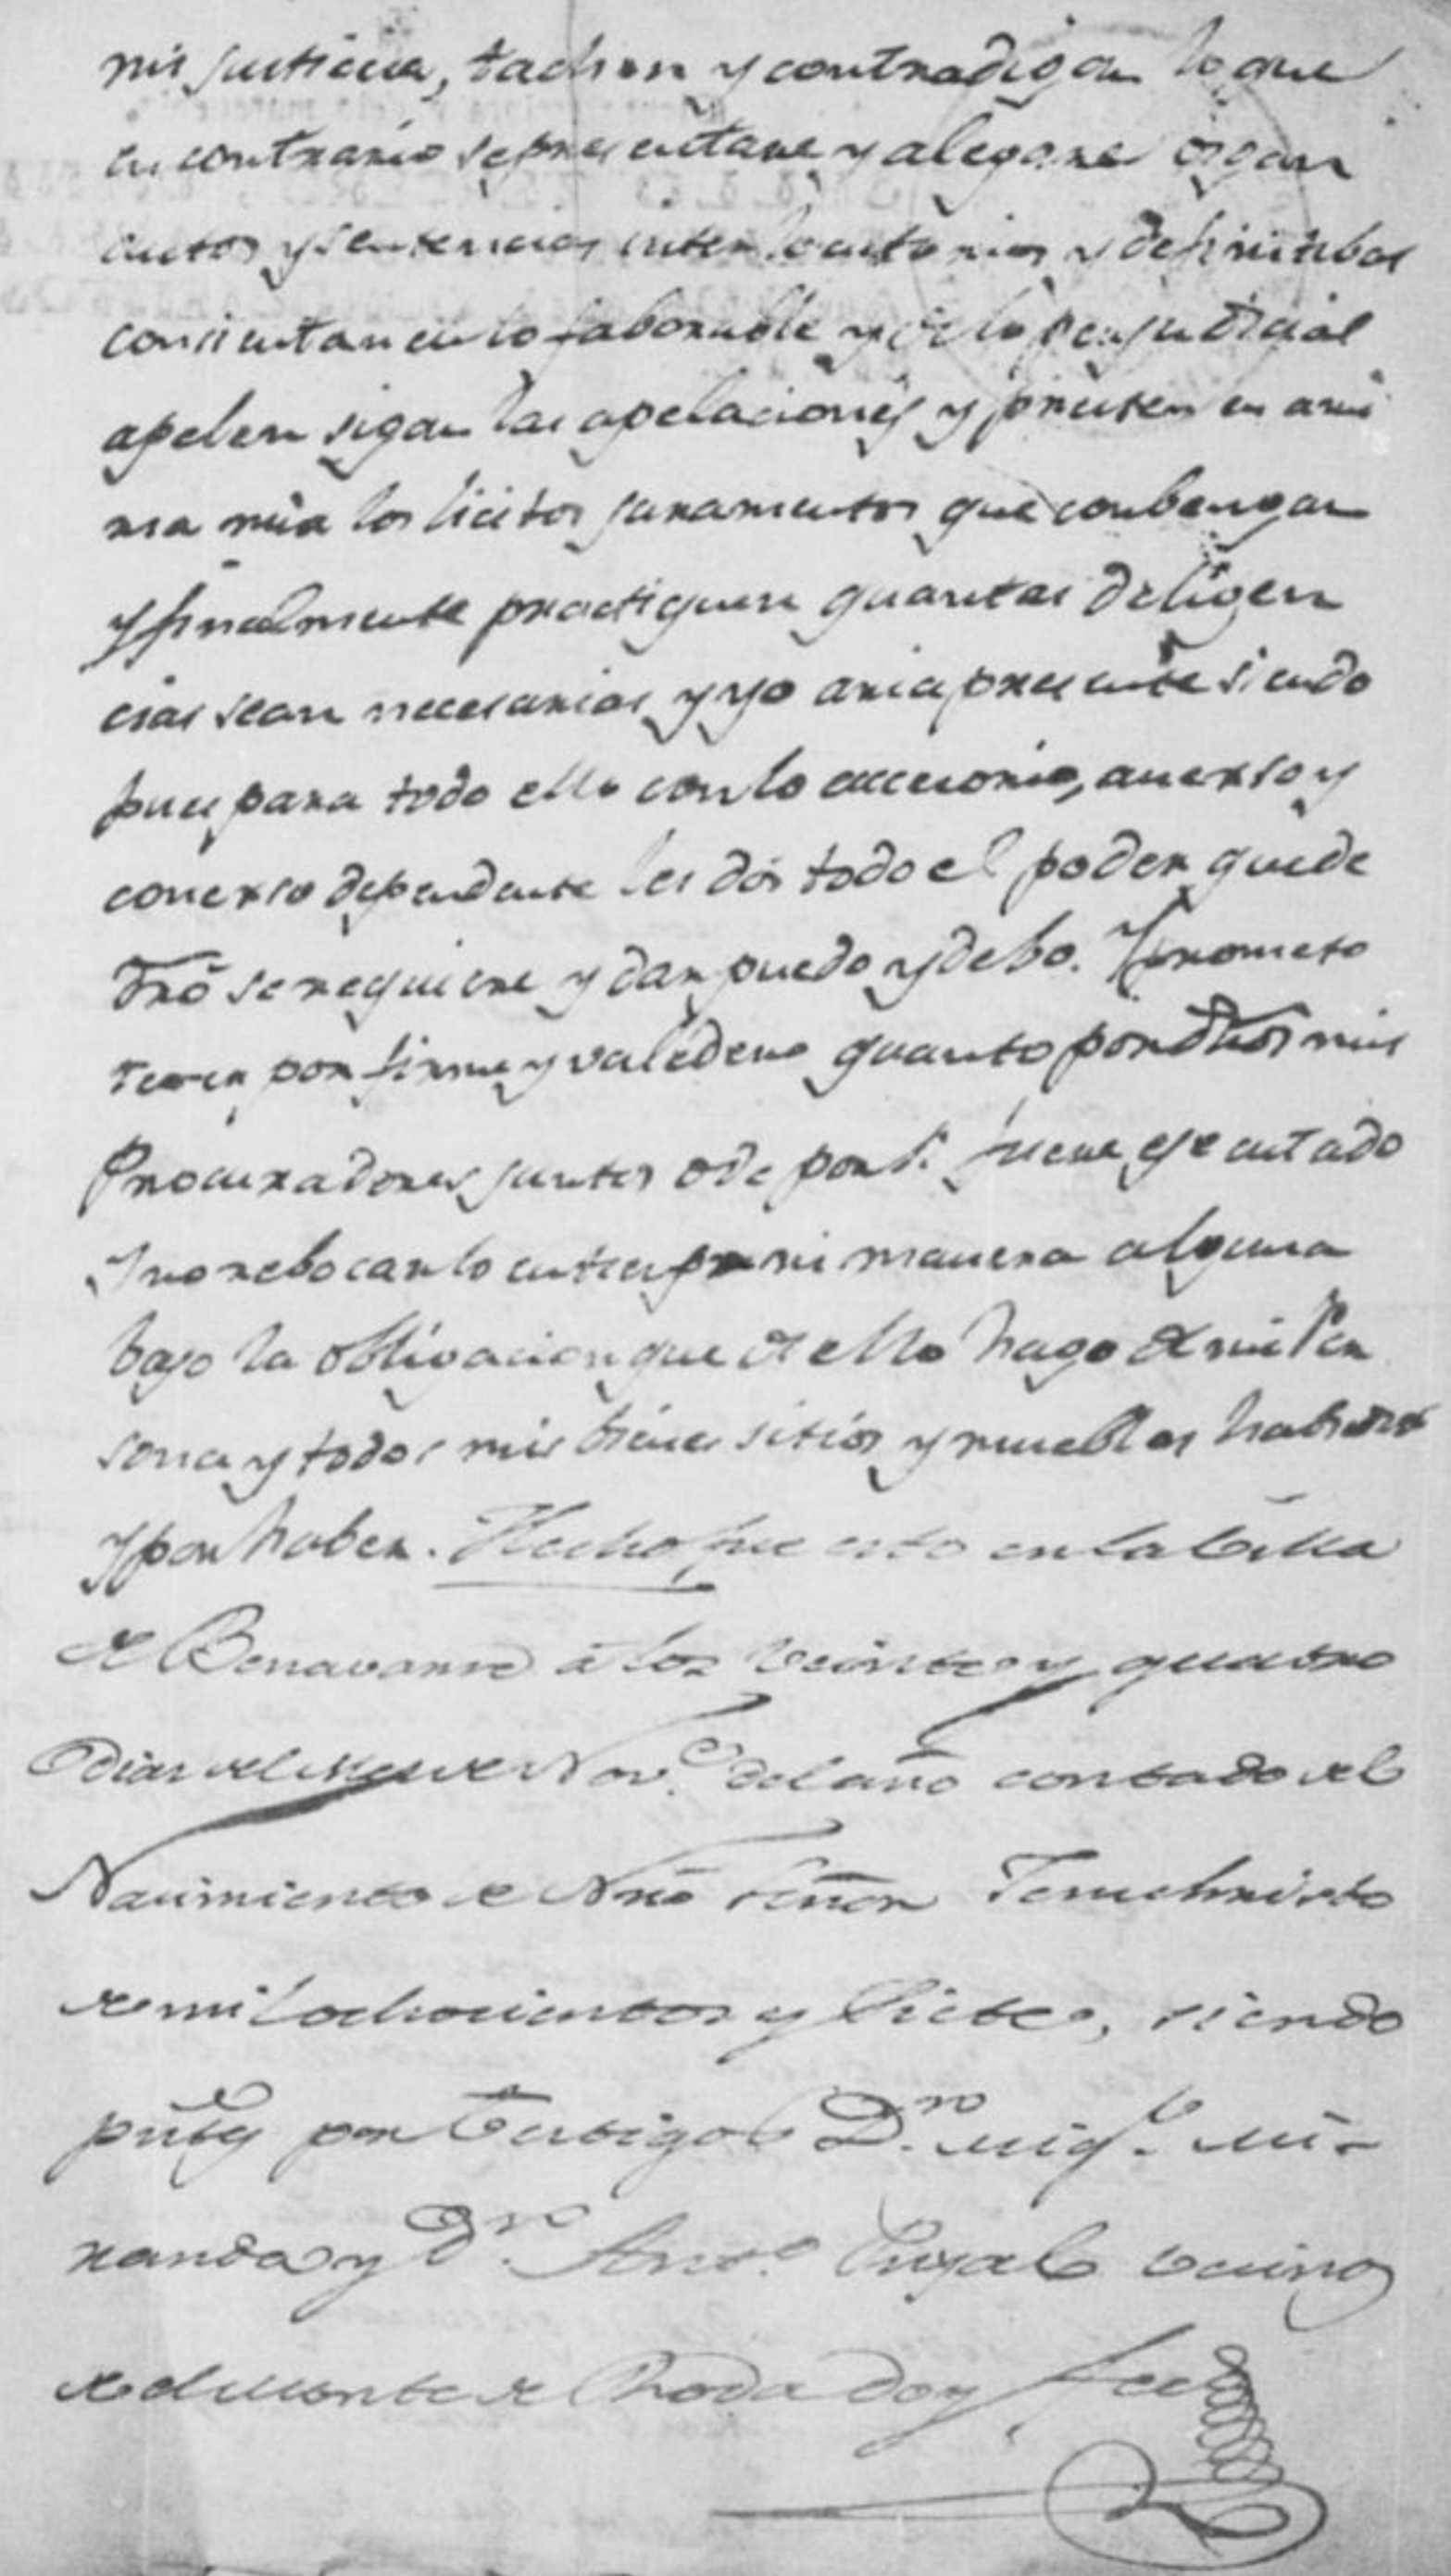 mi justicia, tachen y contradigan lo que
en contrario se presentare y alegare oigan
autos y sentencias interlocutorias y definitibas
consientan en lo faborable y de lo perjudicial
apelen sigan las apelaciones y presten en ani
ma mia los licitos juramentos que conbengan
y finalmente practiquen quantas deligen
cias sean necesarias y yo aria presente siendo
pues para todo ello con lo accesorio, anexso y
conexso dependente les doi todo el poder que de
dro se requiere y dar puedo y debo. Y prometo
tener por firme y valedero quanto por dhos mis
Procuradores juntos o de por si fuere ejecutado
Y no rebocarlo en tiempo ni manera alguna
bajo la obligacion que de ello hago de mi Per
sona y todos mis bienes sitios y muebles habidos
y por haber. Hecho fue esto en la Villa
de Benavarre á los veinte y quatro
Dias del Mes de Nov.e del año contado del
Nacimiento de Nro Señor Jesuchristo
de mil ochocientos y Siete, siendo
pntes por Testigos D.n Mig.l Mi-
randa y D.n Ant.o Puyal vecinos
del Monte de Roda doy fee